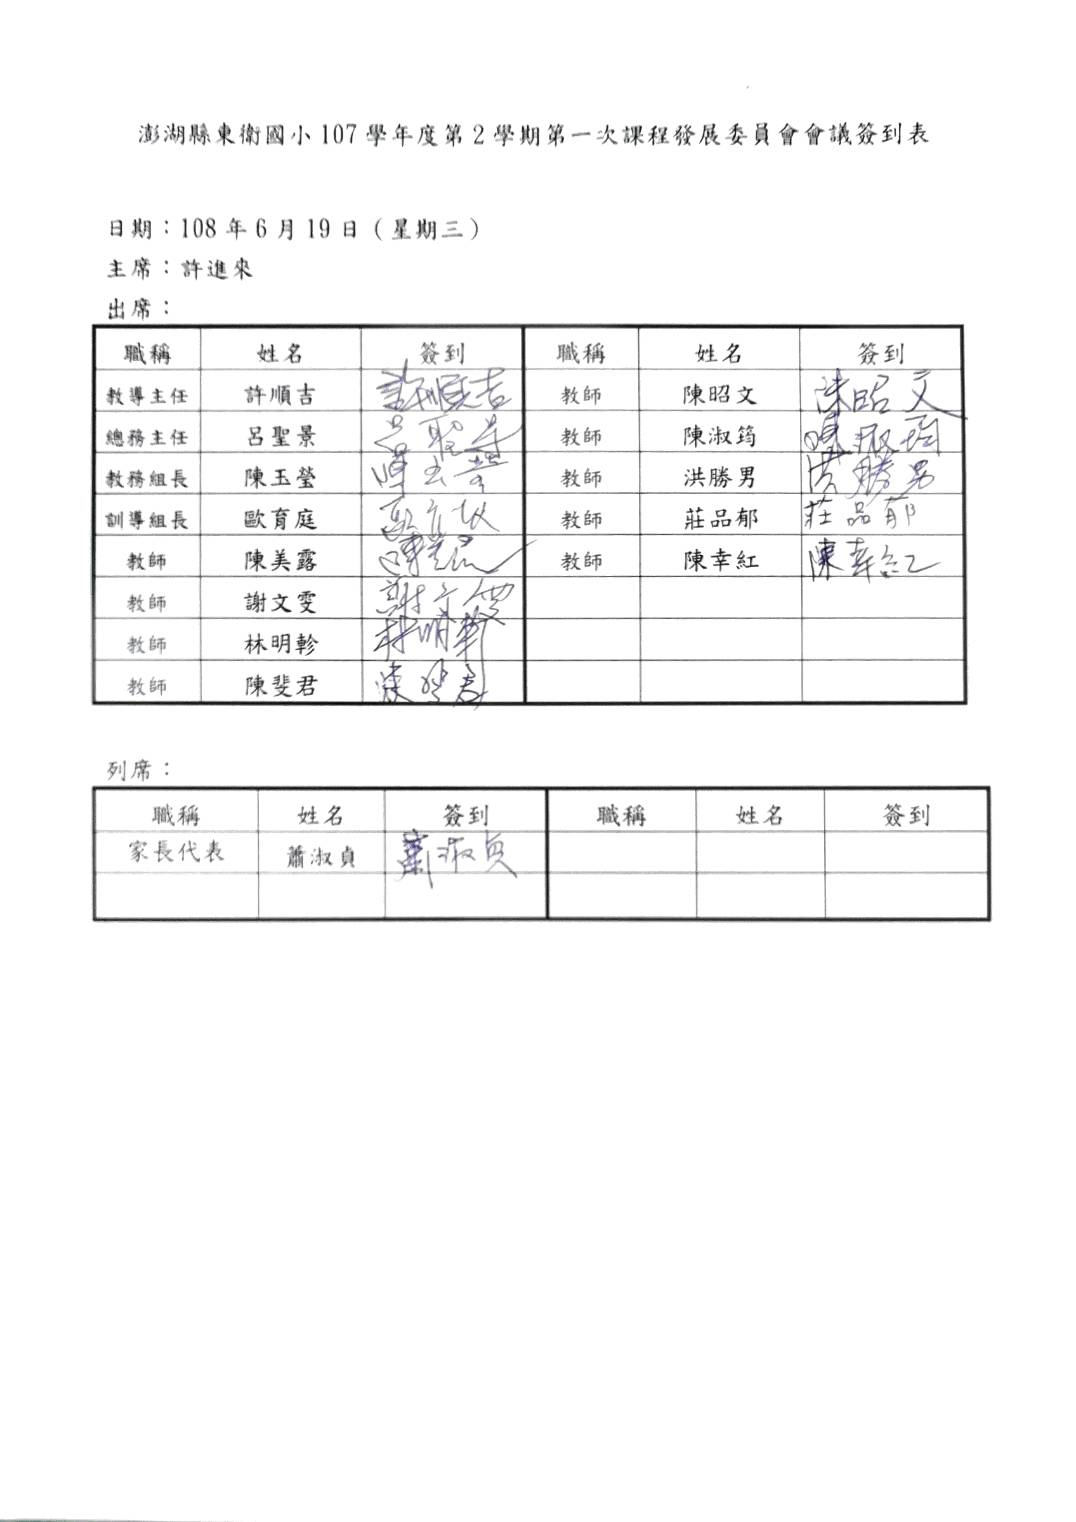 澎湖縣東衛國小107學年度第2學期第一次課程發展委員會會議簽到表
日期：108年6月19日（星期三）
主席：許進來
出席：
職稱 姓名 簽到 職稱 姓名 簽到
教導主任 許順吉 許順吉 教師 陳昭文 陳昭文
總務主任 呂聖景 呂聖景 教師 陳淑筠 陳淑筠
教務組長 陳玉瑩 陳玉瑩 教師 洪勝男 洪勝男
訓導組長 歐育庭 教師 莊品郁 莊品郁
教師 陳美露 教師 陳幸紅 陳幸紅
教師 謝文雯 謝文雯
教師 林明軫 林明軫
教師 陳斐君 陳斐君
列席：
職稱 姓名 簽到 職稱 姓名 簽到
家長代表 蕭淑貞 蕭淑貞